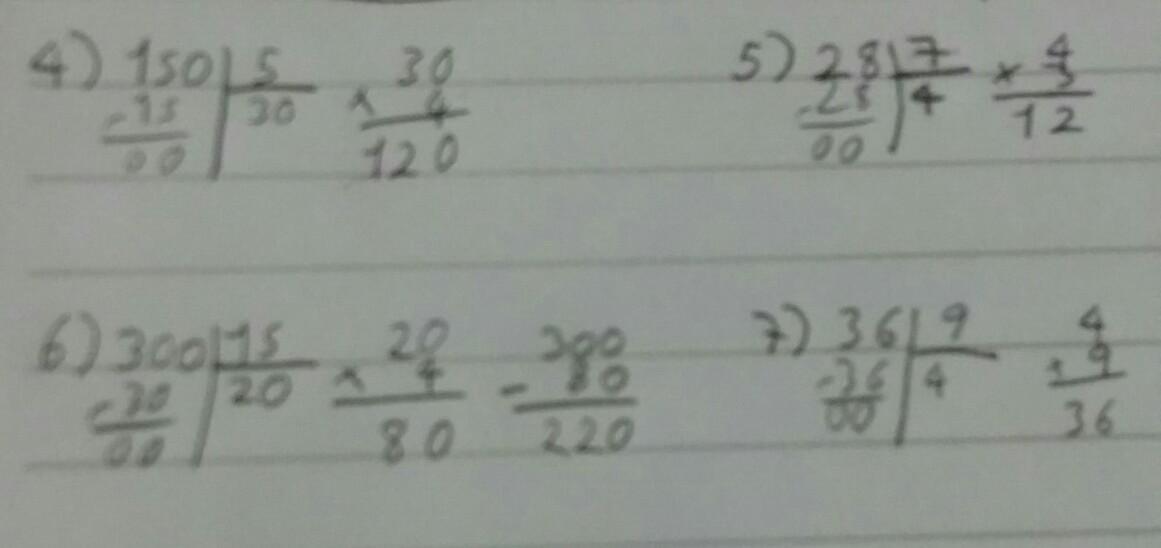 4) 150 5 30 5) 28 7 × 4
- 15 30 × 4 - 28 4 3
00 120 00 12
6) 300 15 20 300 7) 36 9 4
- 30 20 × 4 - 80 - 36 4 × 9
00 80 220 00 36